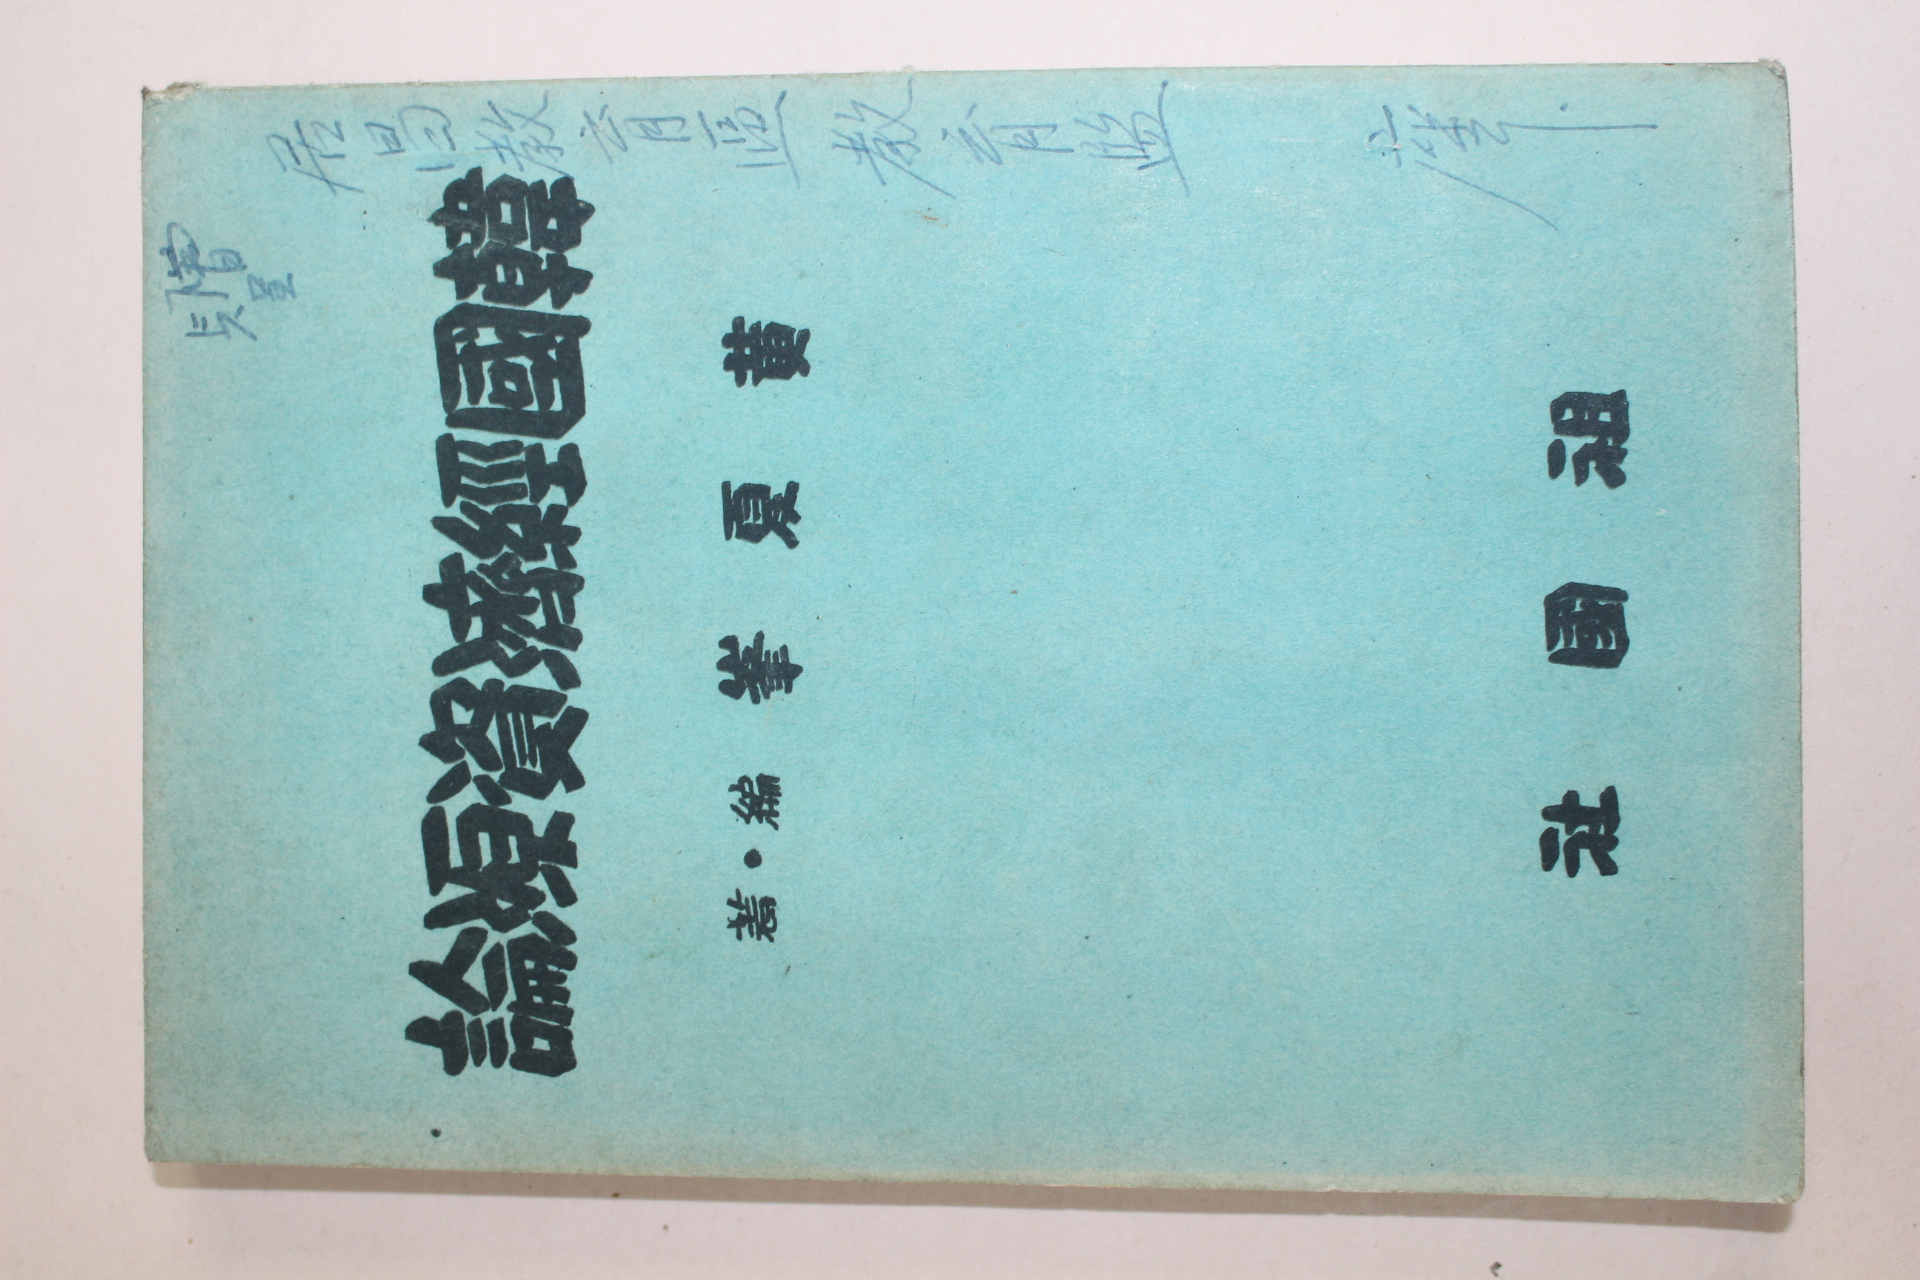 贈呈
居昌教育區 教育監 座下
韓國經濟資源論
黄夏峯 編・著
祖國社